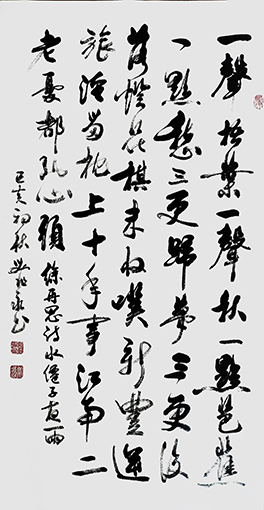 一聲梧葉一聲秋一點芭蕉
一點愁三更歸夢三更後
落燈花棋未收嘆新豐逆
旅淹留枕上十年事江南二
老憂都到心頭 徐再思詩水僊子夜雨
己亥初秋